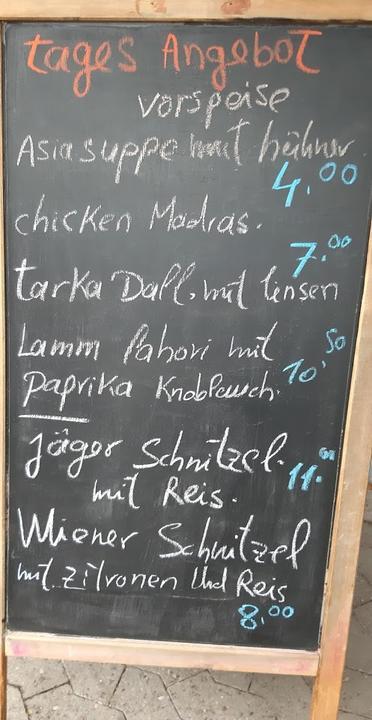 tages Angebot
vorspeise
Asia suppe mit hühner
4.00
chicken Madras.
7.00
tarka Dall. mit linsen
Lamm Pahori mit
10.50
Paprika Knoblauch.
Jäger Schnitzel.
11.00
mit Reis.
Wiener Schnitzel
mit Zitronen Und Reis
8.00